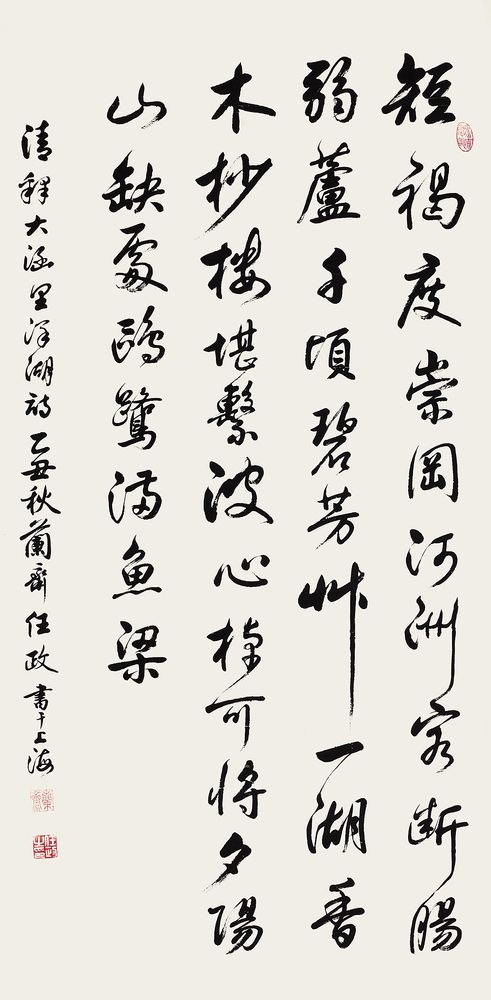 短褐度崇岡河洲客断腸
弱蘆千頃碧芳艸一湖香
木杪樓堪繫波心棹可将夕陽
山缺處鷗鷺满魚梁
清釋大涵里洋湖詩乙丑秋蘭齋任政書于上海